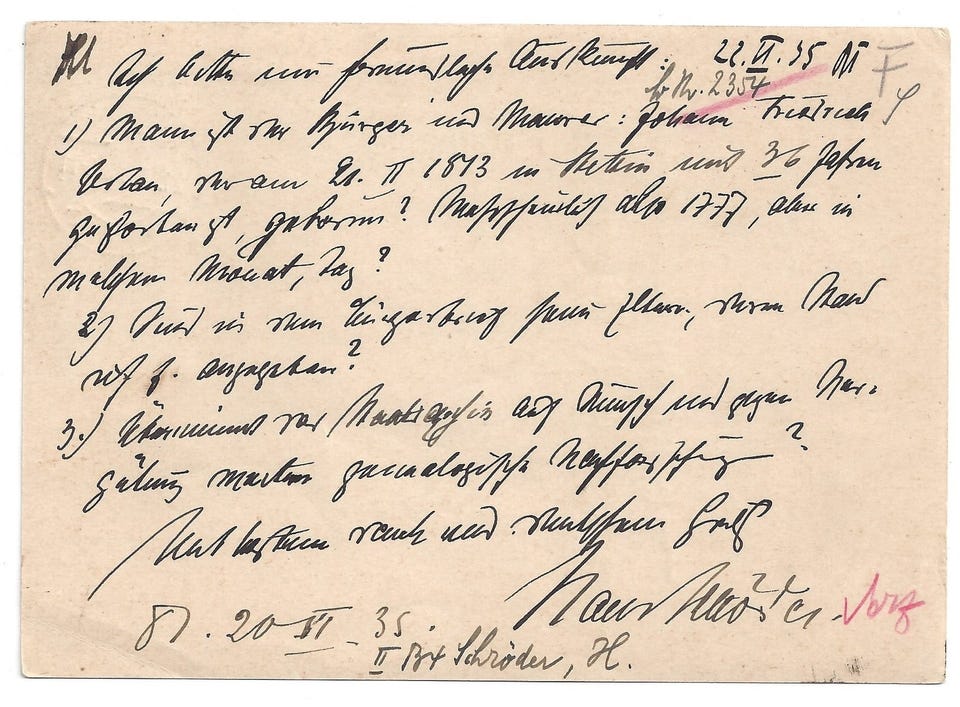 Ich bitte um freundliche Auskunft: 22. VI. 35
Nr. 2354 F
1) Wann ist der Bürger und Maurer: Johann Friedrich
der am 21. II 1813 in Stettin mit 36 Jahren
gestorben ist, geboren? Wahrscheinlich also 1777, aber in
welchem Monat, Tag?
2) Sind in dem Bürgerbrief seine Eltern, deren Stand
usf. angegeben?
3.) Übernimmt das Staatsarchiv auf Wunsch und gegen Ver-
gütung weitere genealogische Nachforschung?
Mit bestem Dank und deutschem Gruß
Hans Schröder.
20 VI. 35.
II Schröder, H.